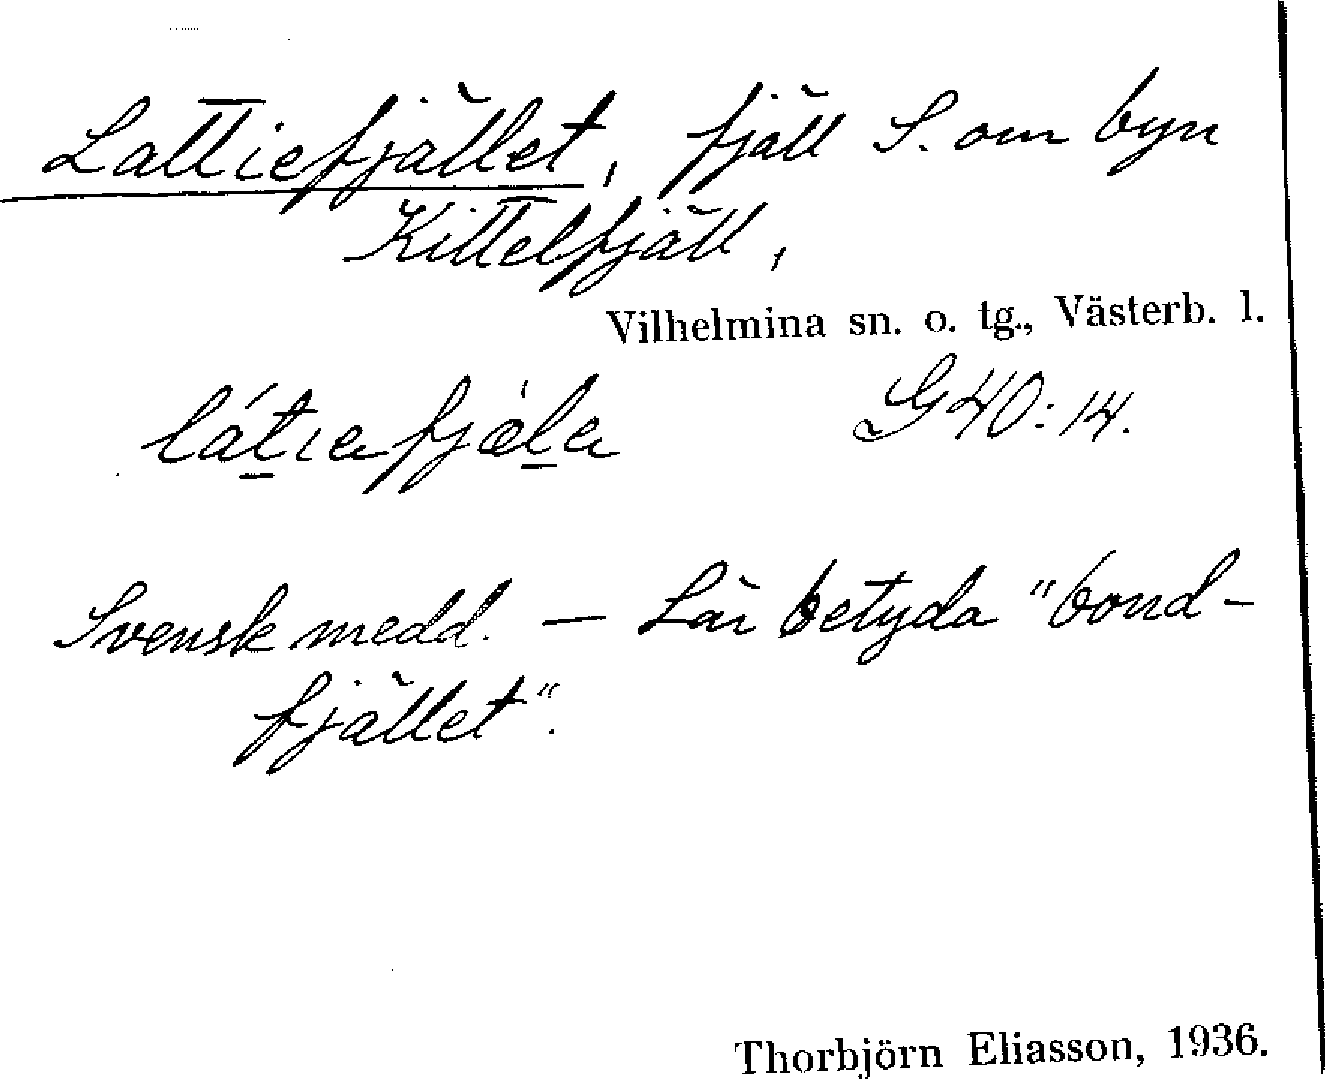 Lattiefjället, fjäll S. om byn
Kittelfjäll,
Vilhelmina sn. o. tg., Västerb. l.
G40:14.
Svensk medd. — Lär betyda "bond-
fjället".
Thorbjörn Eliasson, 1936.